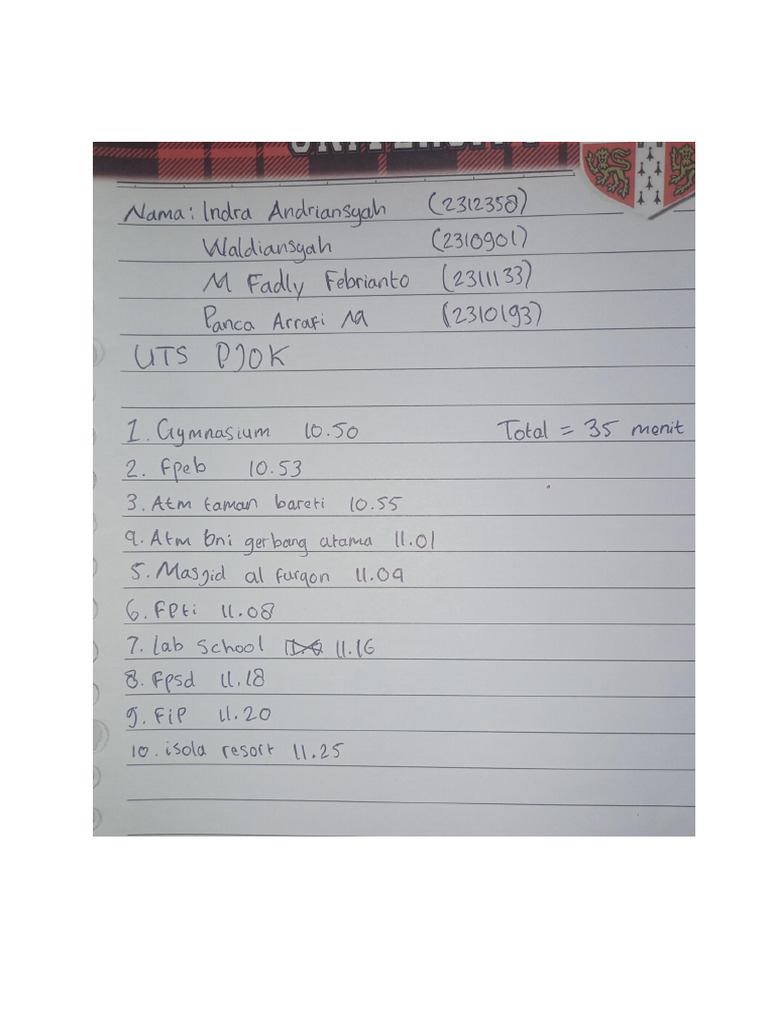 Nama: Indra Andriansyah (2312358)
Waldiansyah (2310901)
M Fadly Febrianto (2311133)
Panca Arrafi M (2310193)
UTS PJOK
1. Gymnasium 10.50 Total = 35 menit
2. Fpeb 10.53
3. Atm taman bareti 10.55
4. Atm bni gerbang utama 11.01
5. Masjid al furqon 11.04
6. Fpti 11.08
7. Lab school 11.16
8. Fpsd 11.18
9. FiP 11.20
10. isola resort 11.25